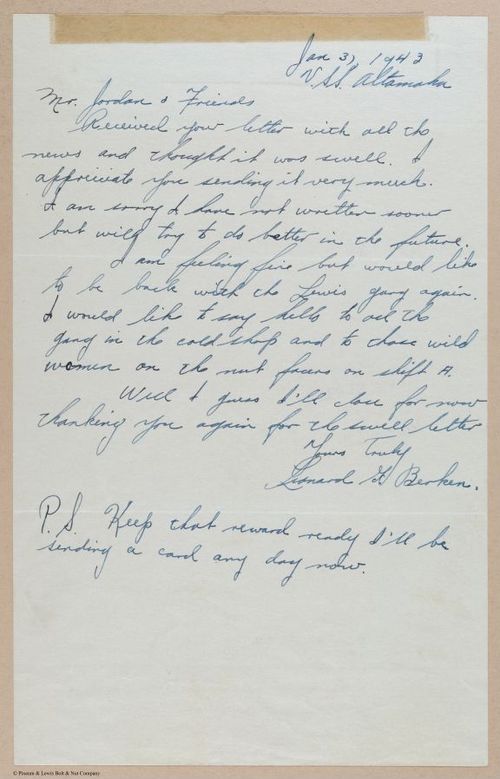 Jan 31, 1943
U.S.S. Altamaha
Mr. Jordan & Friends
Received your letter with all the
news and thought it was swell. I
appriciate you sending it very much.
I am sorry I have not written sooner
but will try to do better in the future.
I am feeling fine but would like
to be back with the Lewis gang again.
I would like to say hello to all the
gang in the cold shop and to those wild
women on the nut facers on shift A.
Well I guess I'll close for now
thanking you again for the swell letter
Yours Truly
Leonard G. Berken.
P.S. Keep that reward ready I'll be
sending a card any day now.
© Pitsrum & Lewis Bolt & Nut Company